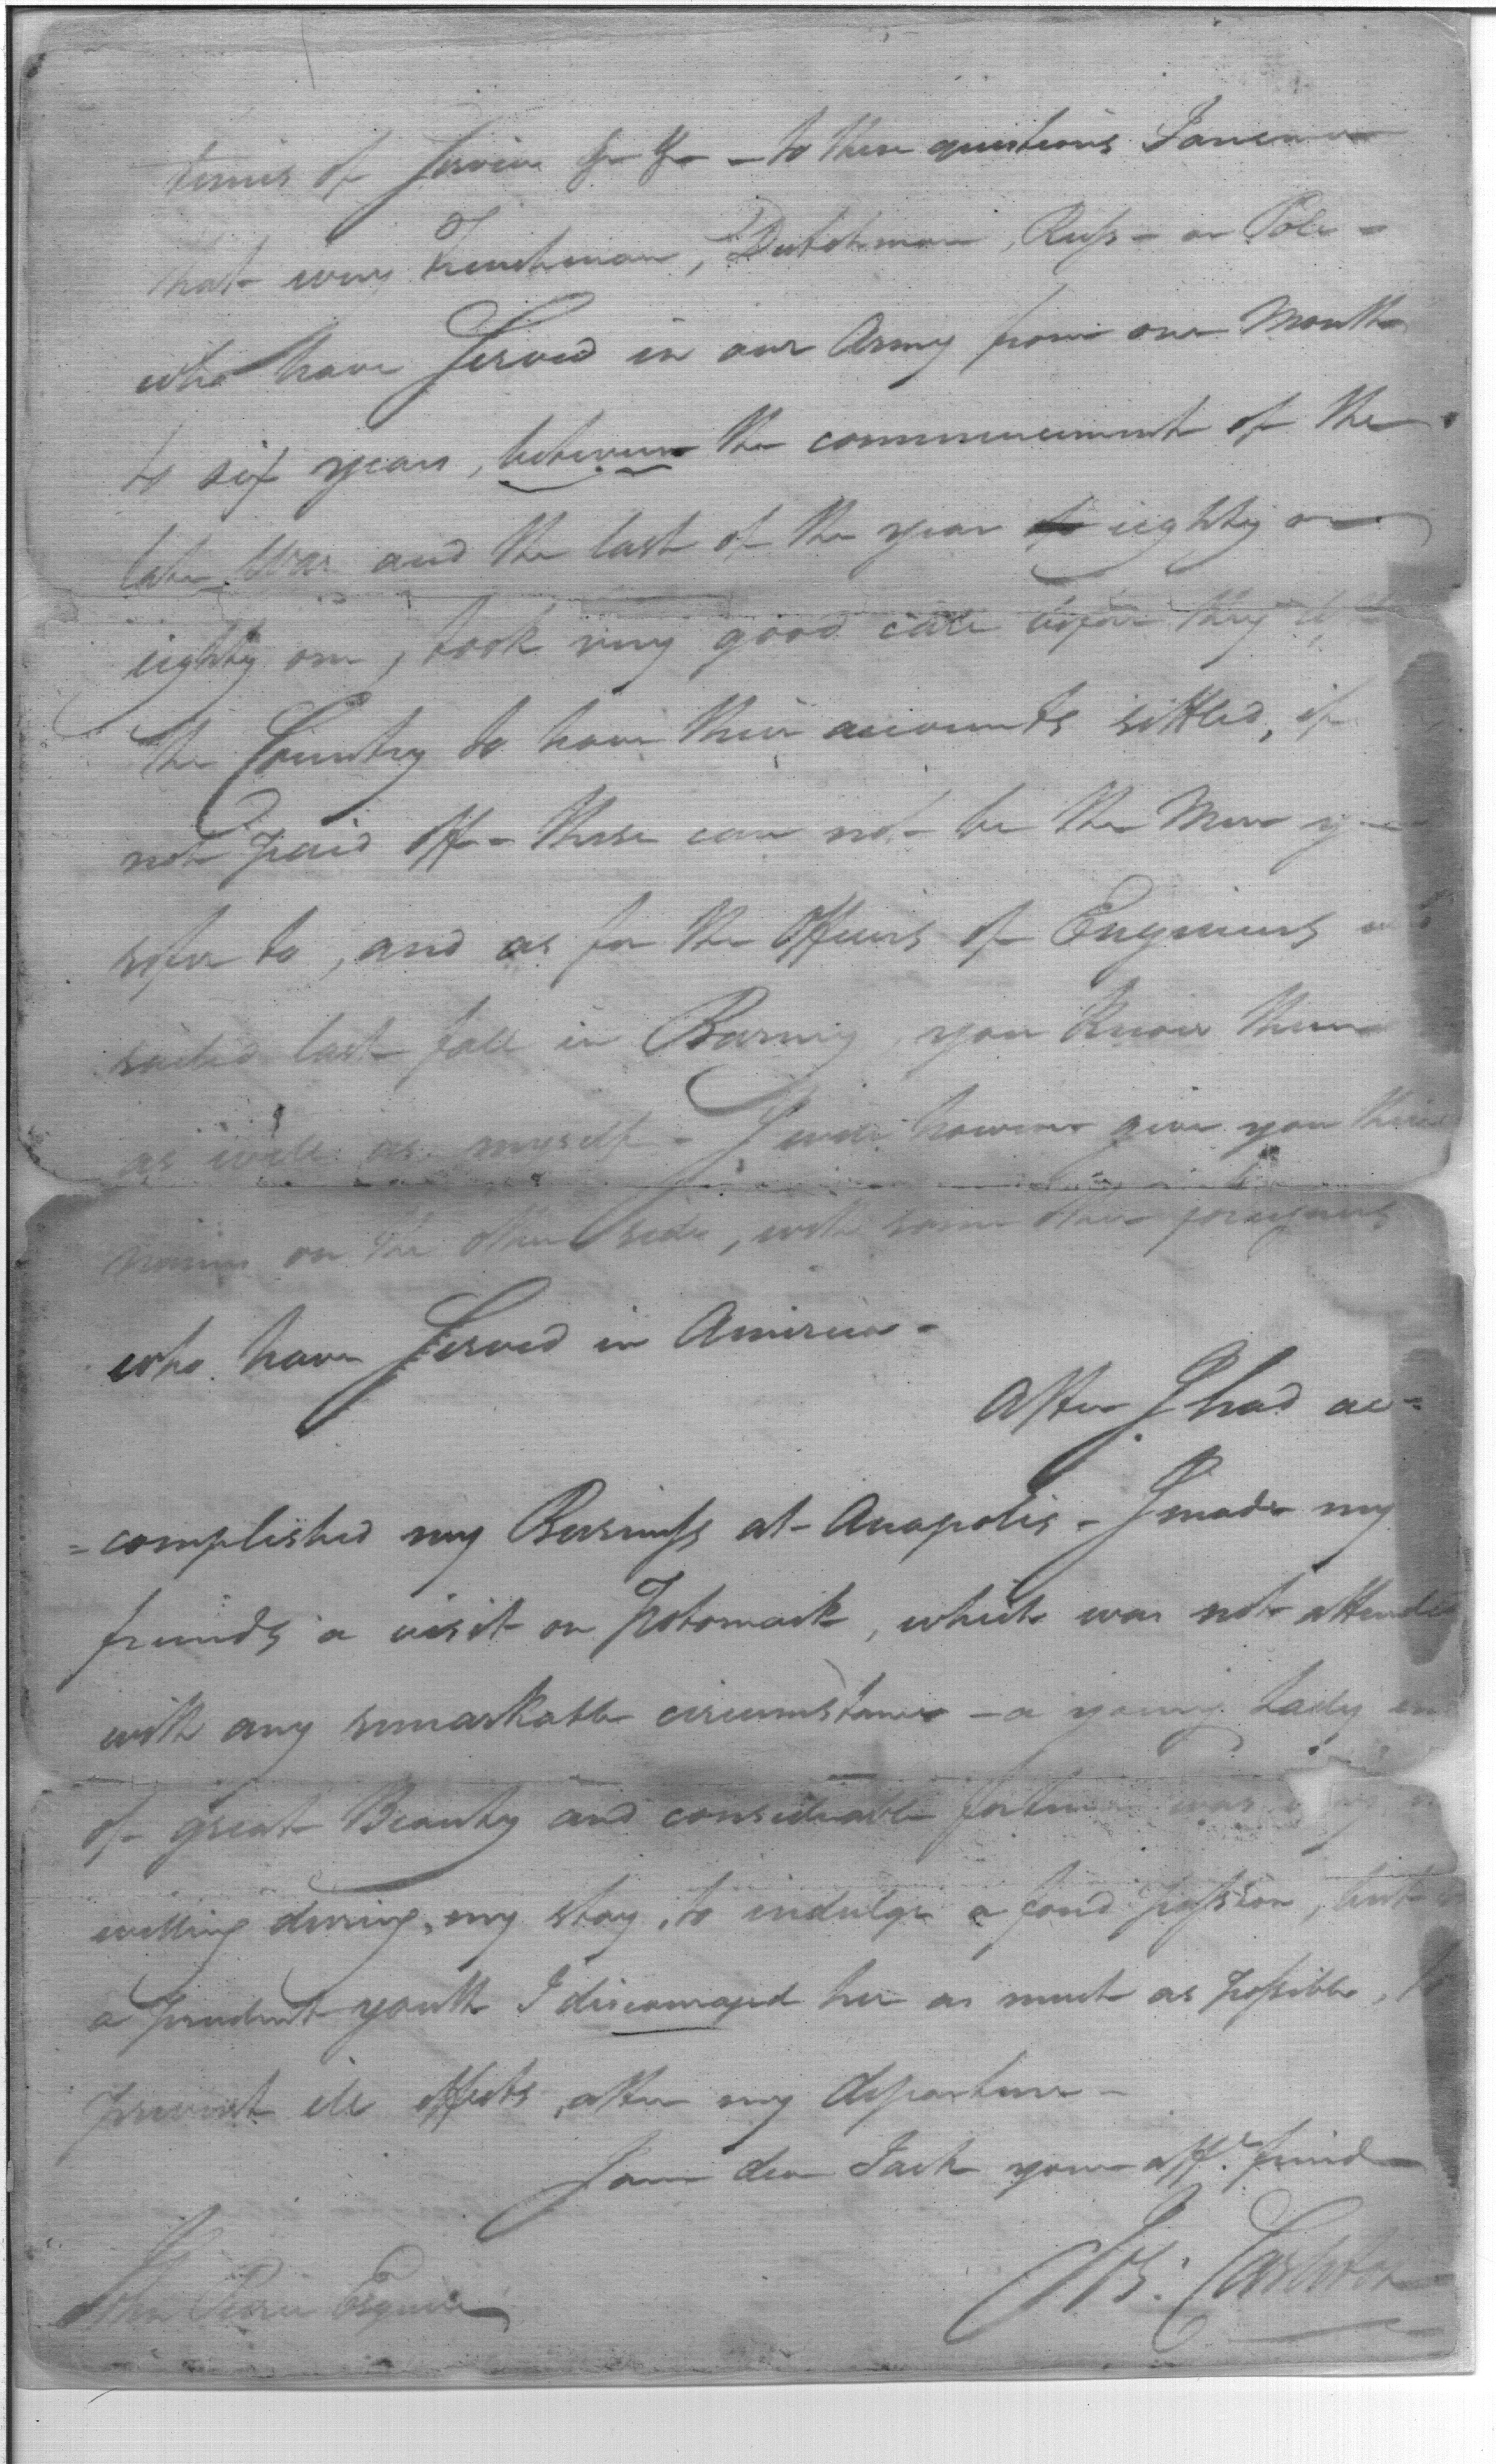 times of Service &c &c - to these questions I answer
that every Frenchman, Dutchman, Russ - or Pole -
who have Served in our Army from one Month
to six years, between the commencement of the
late War and the last of the year eighty one
eighty one, took very good care before they
the Country to have their accounts settled, if
not paid off - these can not be the Men you
refer to, and as for the Officers of Engineers
sailed last fall in Barney, you know them
as well as myself - I will however give you their
names on the other side, with some other foreigners
who have Served in America -
After I had ac=
=complished my Business at Anapolis - I made my
friends a visit on Potomack, which was not attended
with any remarkable circumstances - a young Lady
of great Beauty and considerable fortune was
willing during my stay, to indulge a fond passion, but
a prudent youth I discouraged her as much as possible, to
prevent ill effects, after my departure -
I am dear Jack your aff.e friend
Jos: Carleton
John Pierce Esquire